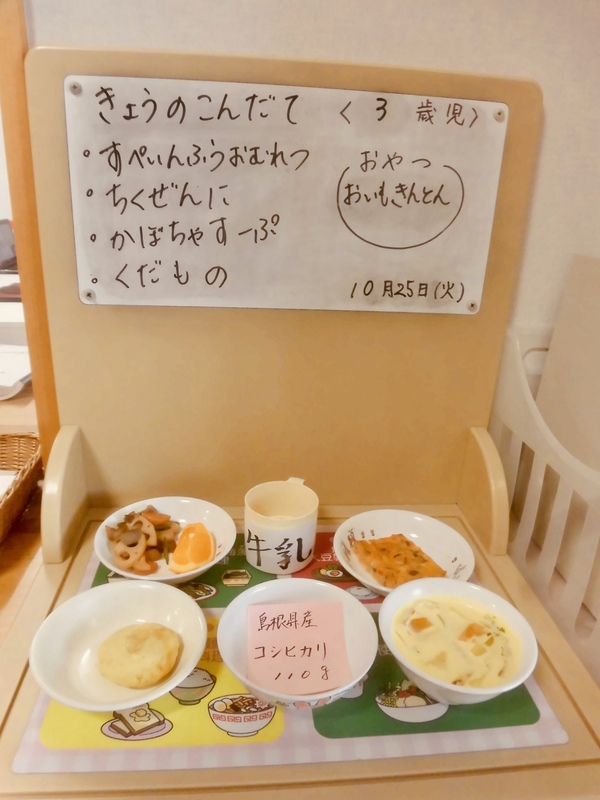 きょうのこんだて 〈 3 歳児〉
・すぺいんふうおむれつ
・ちくぜんに
・かぼちゃすーぷ
・くだもの
おやつ
おいもきんとん
10月25日(火)
牛乳
島根県産
コシヒカリ
110g